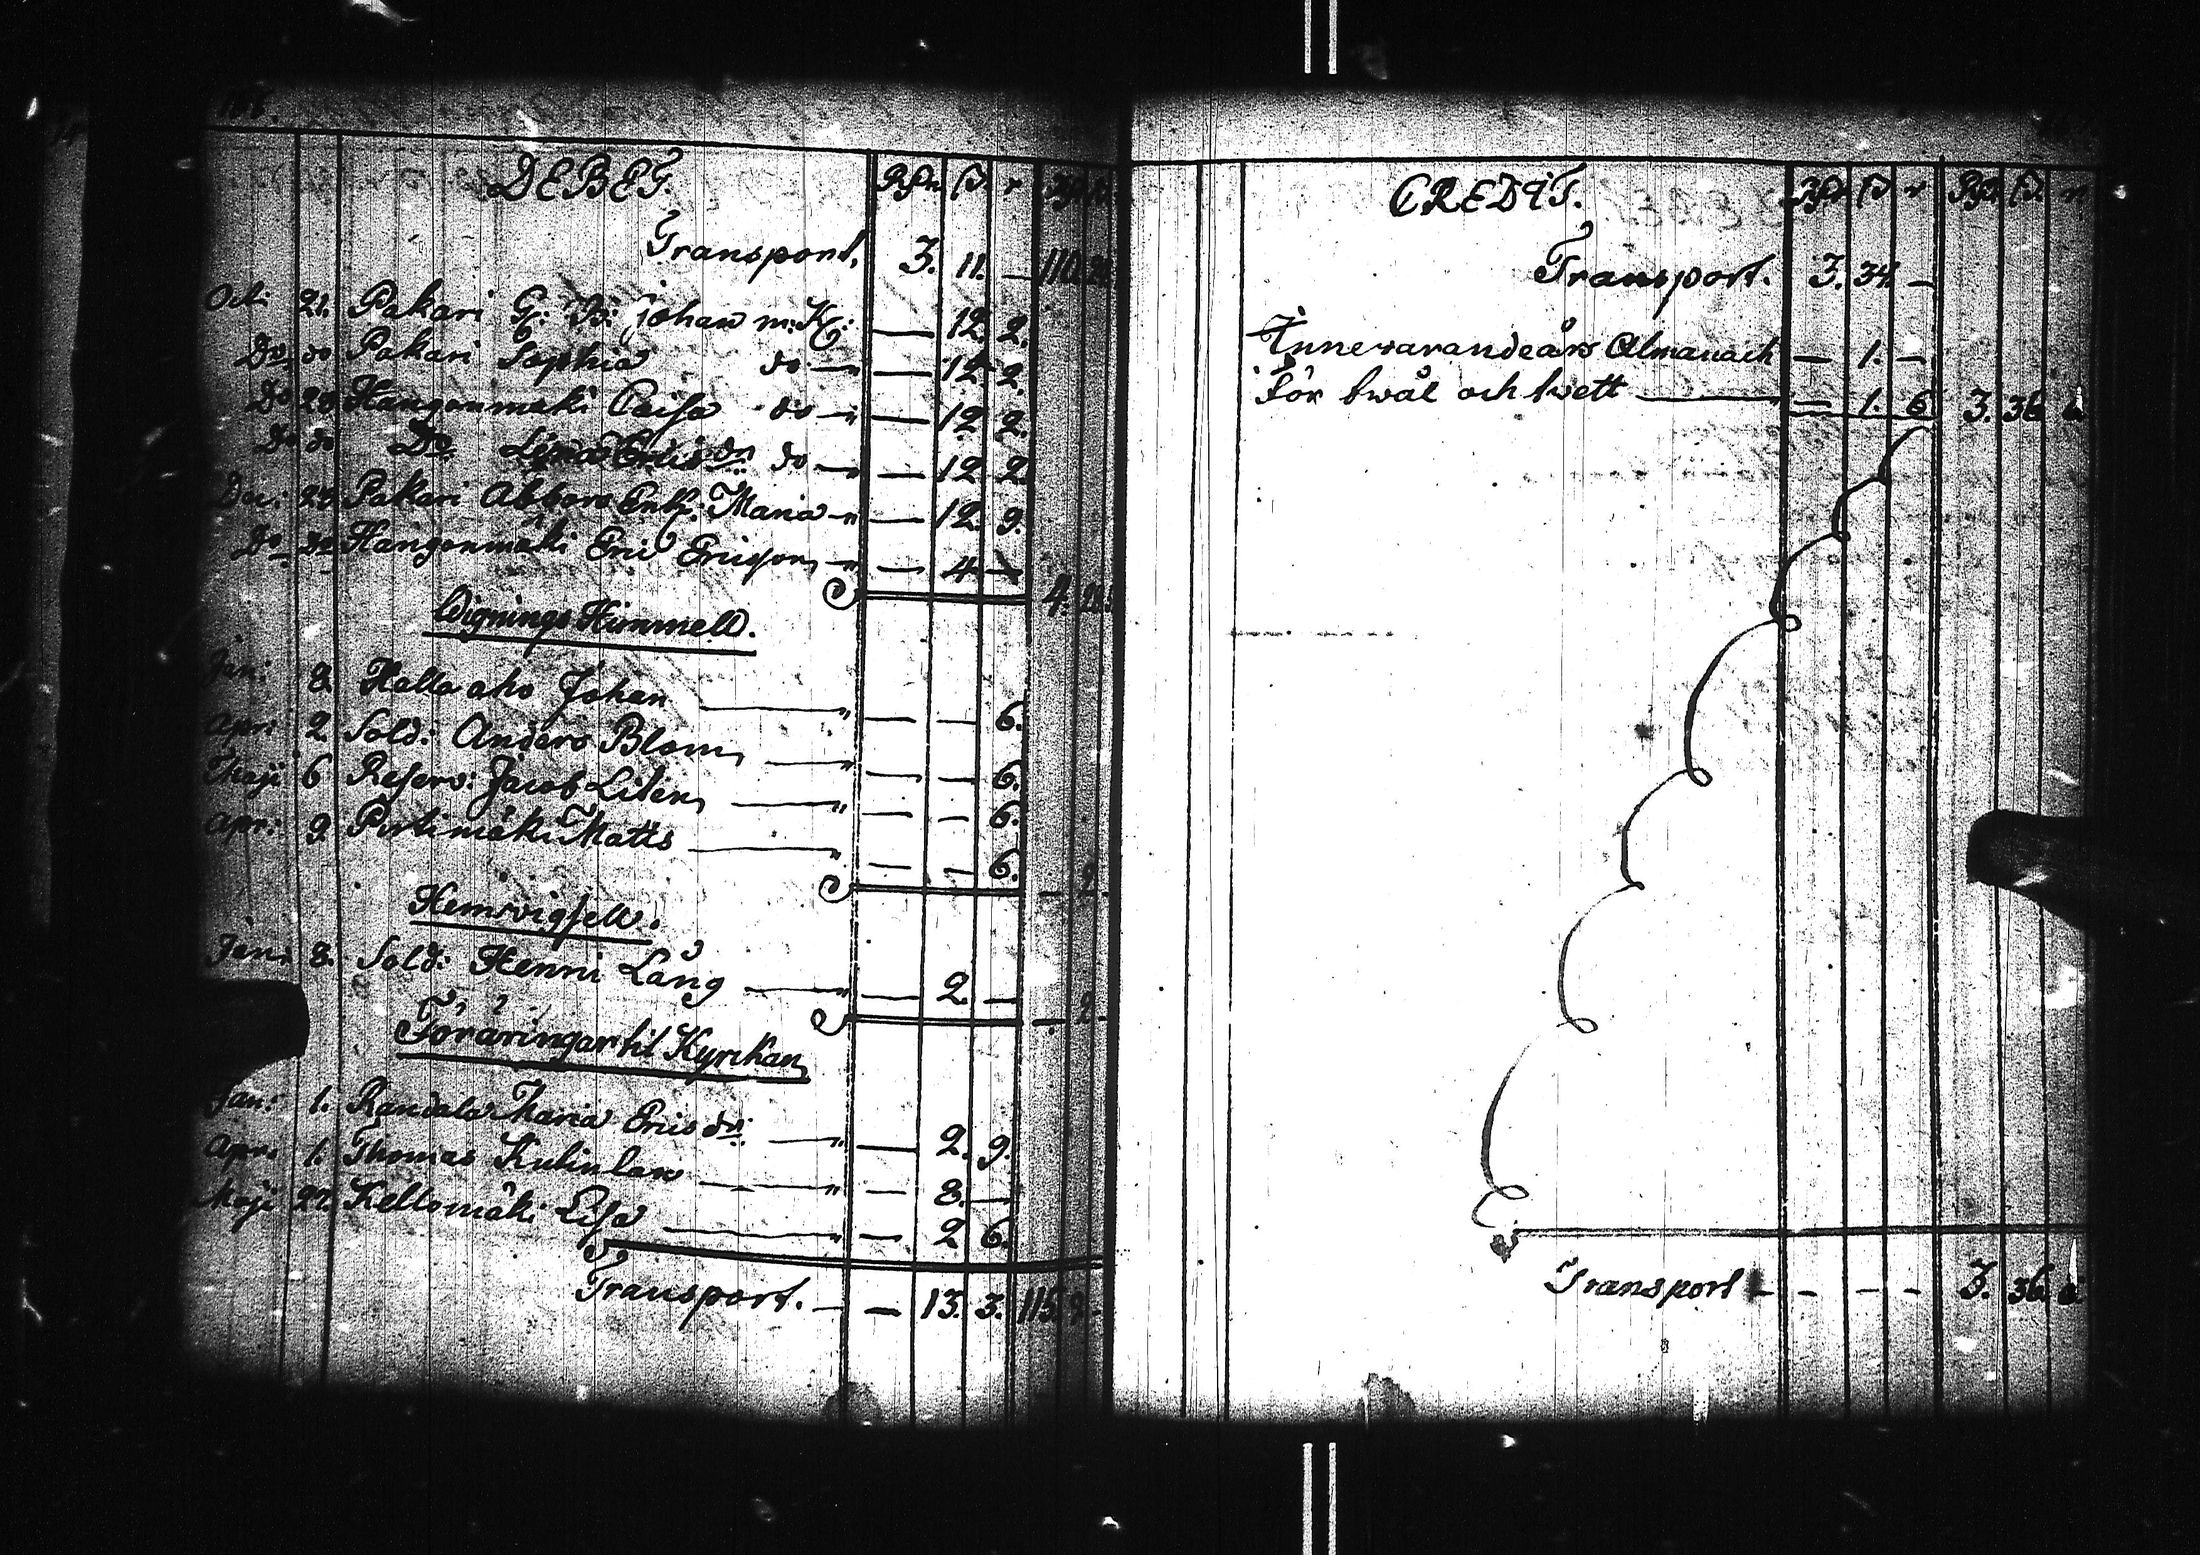 DEBET. Rdr. sk. r
Transport, 3. 11. — 110.
Oct: 21. Pakari G: B: Johan m: K: — 12. 2.
Do do Pakari Sophia do — 12. 2.
Do 28 Hangonmäki Caisa do — 12 2.
Do do Do Lisa Ericsdr: do — 12 2
Dec: 28 Pakari Abbors Enk: Maria — 12. 9.
Do Hangonmäki Eric Ericson, — 4 —
4.
Wignings Himmell.
Jan: 8. Halla aho Johan — — 6.
Apr: 2 Sold: Anders Blom, — — 6.
Maji 6 Reserv: Jacob Liten, — — 6.
Apr: 9 Pirtimäki Matts — — 6.
— 2.
Hemvigsell.
Jan: 8. Sold: Henri Lång — 2. —
— 2 -
Föräringar til Kyrckan,
Jan: 1. Randala Maria Ericsdr: — 2. 9.
Apr: 1. Thomas — 8. —
Maji 27. Kellomäki Lisa — 2 6.
Transport. — — 13. 3. 115. 9. -
CREDIT. Rdr sk r Rdr sk. r
Transport. 3. 34. —
Innevarande års Almanach — 1. —
För twål och twett — 1. 6 3. 36 6
Transport — — — — 3. 36 6